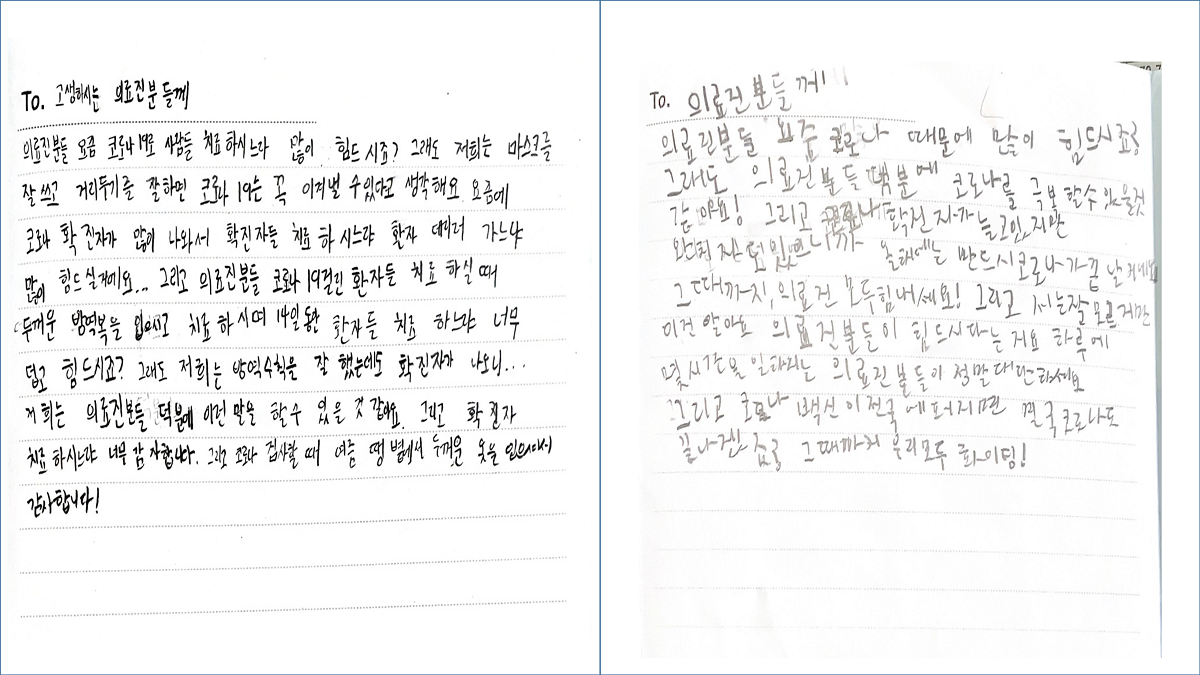 To. 고생하시는 의료진분들께
의료진분들 요즘 코로나19로 사람들 치료 하시느라 많이 힘드시죠? 그래도 저희는 마스크를
잘 쓰고 거리두기를 잘하면 코로나 19는 꼭 이겨낼 수있다고 생각해요. 요즘에
코로나 확진자가 많이 나와서 확진자들 치료 하시느냐 환자 데리러 가느냐
많이 힘드실거에요... 그리고 의료진분들 코로나19걸린 환자들 치료 하실 때
두꺼운 방역복을 입으시고 치료 하시며 14일동안 환자들 치료 하느냐 너무
덥고 힘드시죠? 그래도 저희는 방역수칙을 잘 했는데도 확진자가 나오니...
저희는 의료진분들 덕분에 이런 말을 할수 있을 것 같아요. 그리고 확진자
치료 하시느냐 너무 감사합니다. 그리고 코로나 검사할 때 여름 땡볕에서 두꺼운 옷을 입으셔서
감사합니다!
To. 의료진분들께!!
의료진분들 요즘 코로나 때문에 많이 힘드시죠?
그래도 의료진분들 덕분에 코로나를 극복 할수 있을것
같아요! 그리고 코로나 확진자가 늘고있지만
올해에는 반드시코로나가끝날거에요
그때까지, 의료진 모두힘내세요! 그리고 저는잘모르지만
이건 알아요 의료진분들이 힘드시다는 거요 하루에
몇시간을 일하시는 의료진분들이 정말대단하세요
그리고 코로나 백신이전국에퍼지면 결국코로나도
끝나겠죠? 그때까지 우리모두 화이팅!